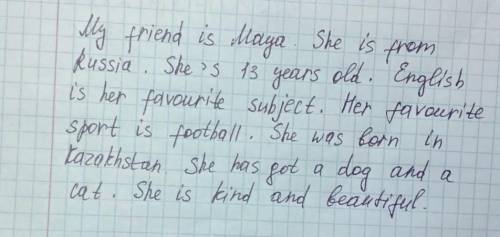 My friend is Maya. She is from
Russia. She's 13 years old. English
is her favourite subject. Her favourite
sport is football. She was born in
Kazakhstan. She has got a dog and a
cat. She is kind and beautiful.